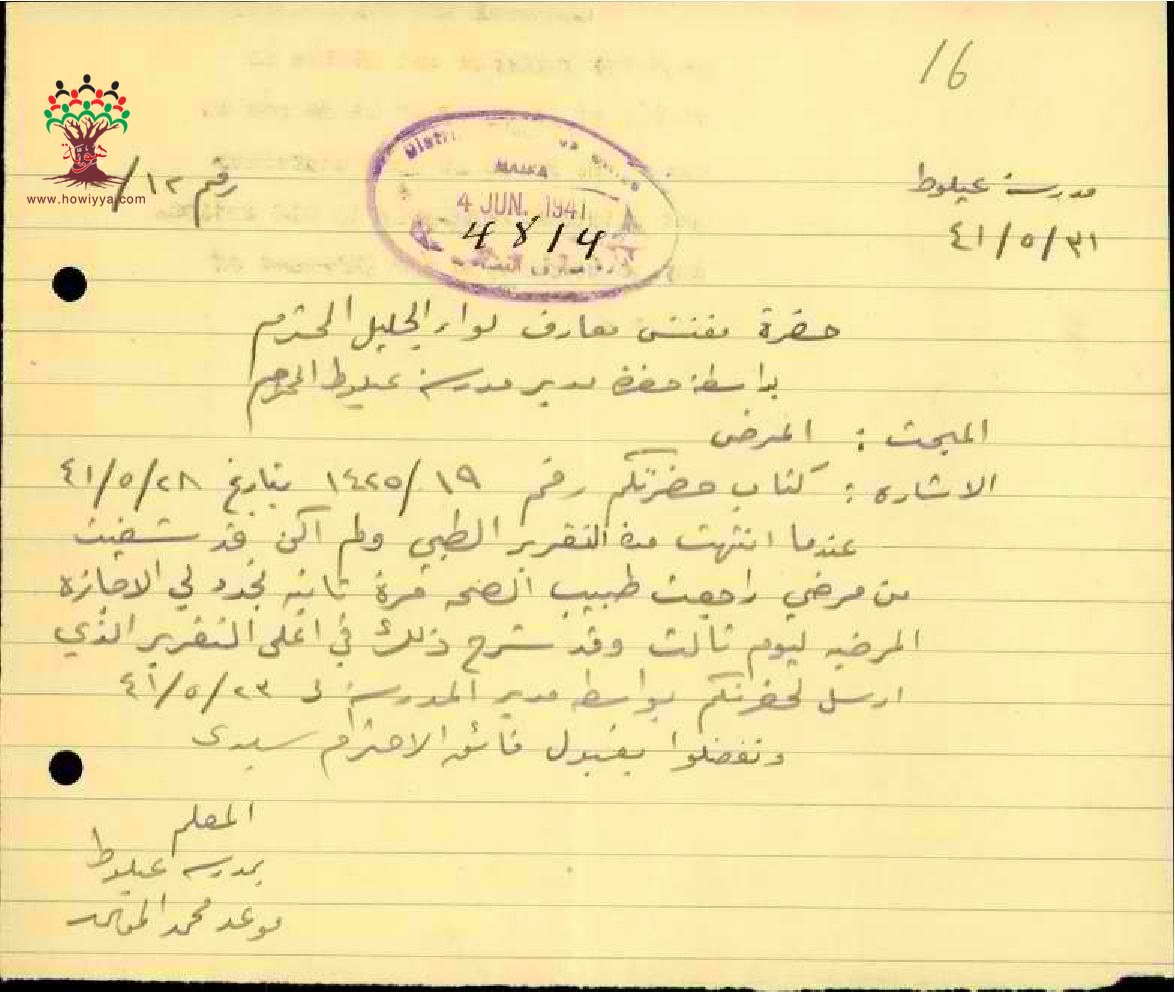 16
هوية
www.howiyya.com
رقم ١٢/
مدرسة عيلوط
٤١/٥/٣١
HAIFA
4 JUN. 1941
4814
حضرة مفتش معارف لواء الجليل المحترم
بواسطة حضرة مدير مدرسة عيلوط المحترم
المبحث : المرض
الاشاره : كتاب حضرتكم رقم ١٤٢٥/١٩ بتاريخ ٤١/٥/٢٨
عندما انتهت مدة التقرير الطبي ولم اكن قد شفيت
من مرضي راجعت طبيب الصحه مرة ثانيه فجدد لي الاجازه
المرضيه ليوم ثالث وقد شرح ذلك في اعلى التقرير الذي
ارسل لحضرتكم بواسطة مدير المدرسة في ٤١/٥/٢٣
وتفضلوا بقبول فائق الاحترام سيدي
المعلم
بمدرسة عيلوط
محمد